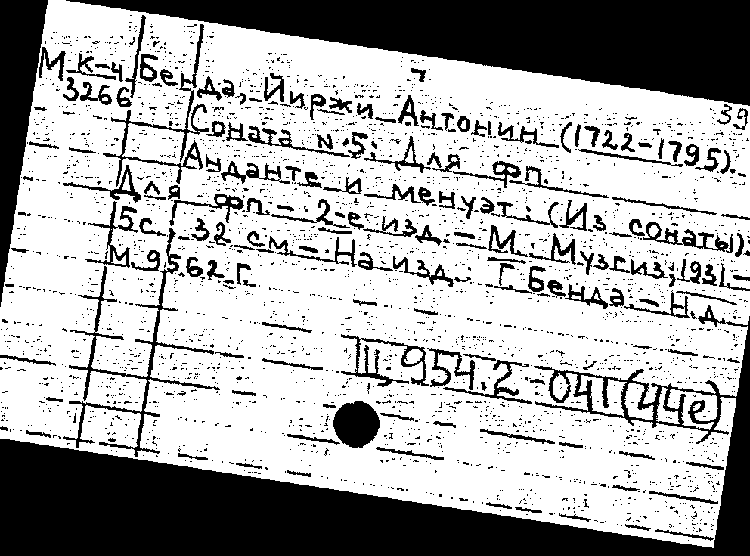 39
М к-ч Бенда, Йиржи Антонин (1722-1795).
3266
Соната N.5: Для фп.
Анданте и менуэт: (Из сонаты):
Для фп. - 2-е изд. - М.: Музгиз, 1931. -
5с.; 32 см. - На изд.: Г. Бенда. - Н.д.
М. 9562 Г.
Щ.954.2-041(44е)